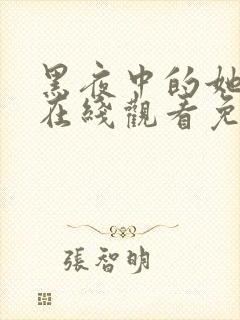 黑夜中的她
在綫觀看免
張智明